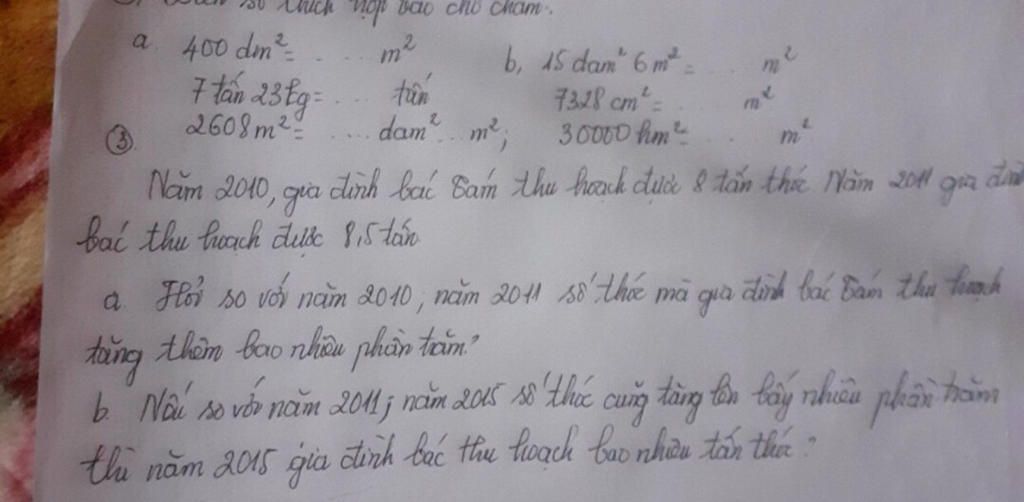 số thích hợp vào chỗ chấm.
a. 400 dm² = .... m²
b, 15 dam² 6 m² = ... m²
7 tấn 23 kg = .... tấn
7328 cm² = .... m²
2608 m² = .... dam² ... m²;
30000 hm² = ... m²
③
Năm 2010, gia đình bác Tám thu hoạch được 8 tấn thóc. Năm 2011 gia đình
bác thu hoạch được 8,5 tấn
a. Hỏi so với năm 2010, năm 2011 số thóc mà gia đình bác Tám thu hoạch
tăng thêm bao nhiêu phần trăm?
b. Nếu so với năm 2011, năm 2015 số thóc cũng tăng lên bấy nhiêu phần trăm
thì năm 2015 gia đình bác thu hoạch bao nhiêu tấn thóc?